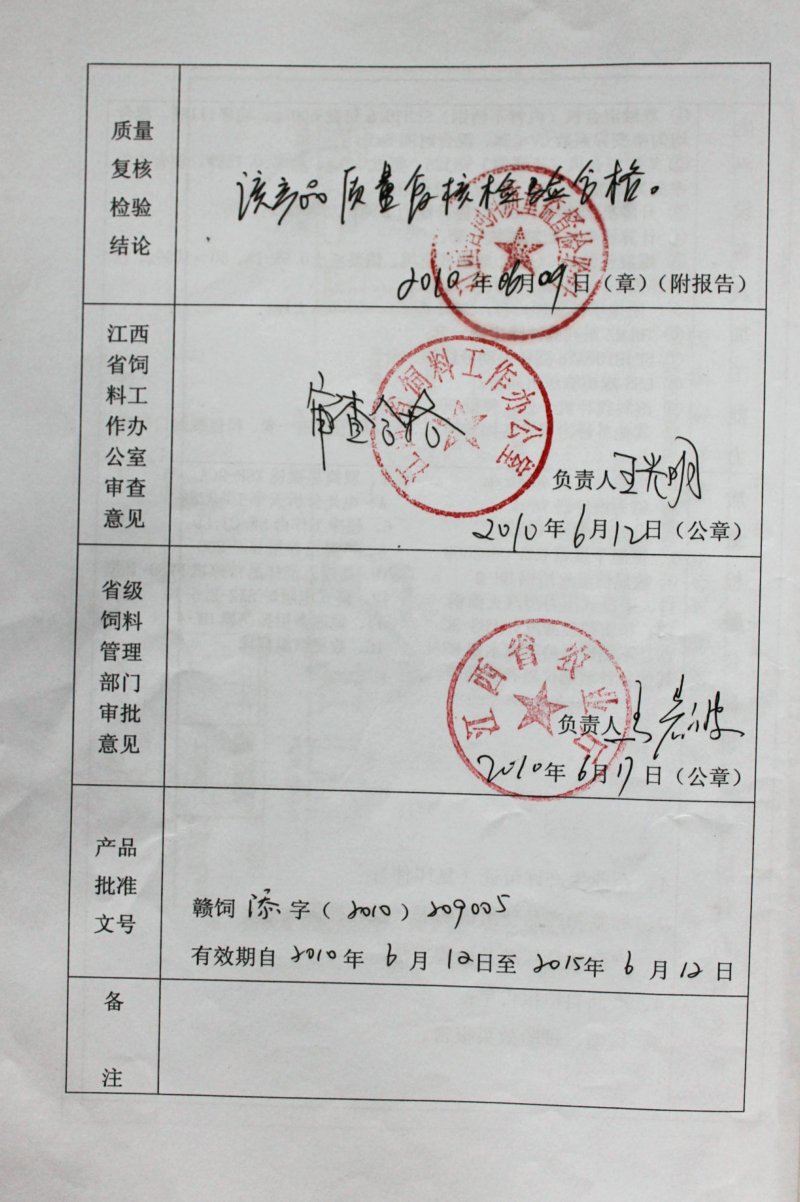 质量
复核
检验
结论
该产品质量复核检验合格。
2010年06月09日（章）（附报告）
江西
省饲
料工
作办
公室
审查
意见
审查合格
江西省饲料工作办公室
负责人王光明
2010年6月12日（公章）
省级
饲料
管理
部门
审批
意见
江西省农业厅
负责人
2010年6月17日（公章）
产品
批准
文号
赣饲添字（2010）209005
有效期自2010年6月12日至2015年6月12日
备
注